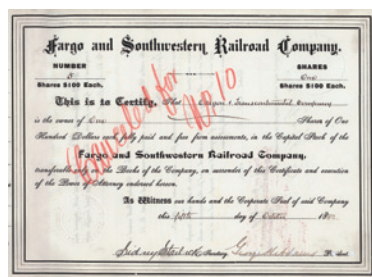 Fargo and Southwestern Railroad Company.
NUMBER SHARES
5 One
Shares $100 Each. Shares $100 Each.
This is to Certify, That Oregon & Transcontinental Company
is the owner of One Shares of One
Hundred Dollars each, fully paid and free from assessments, in the Capital Stock of the
Fargo and Southwestern Railroad Company,
transferable only on the Books of the Company, on surrender of this Certificate and execution
of the Power of Attorney endorsed hereon.
In Witness our hands and the Corporate Seal of said Company
this day of October 18
Secretary George
Cancelled for
No. 10